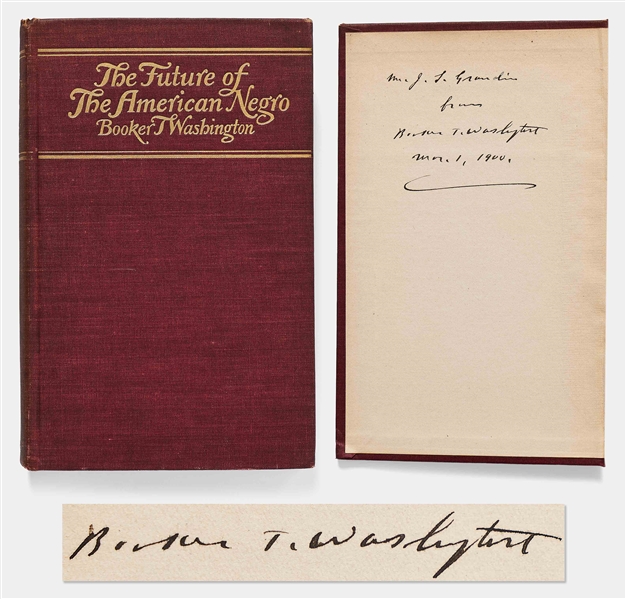 The Future of
The American Negro
Booker T Washington
Mr. J. L. Grandin
from
Booker T. Washington
Mar. 1, 1900.
Booker T. Washington